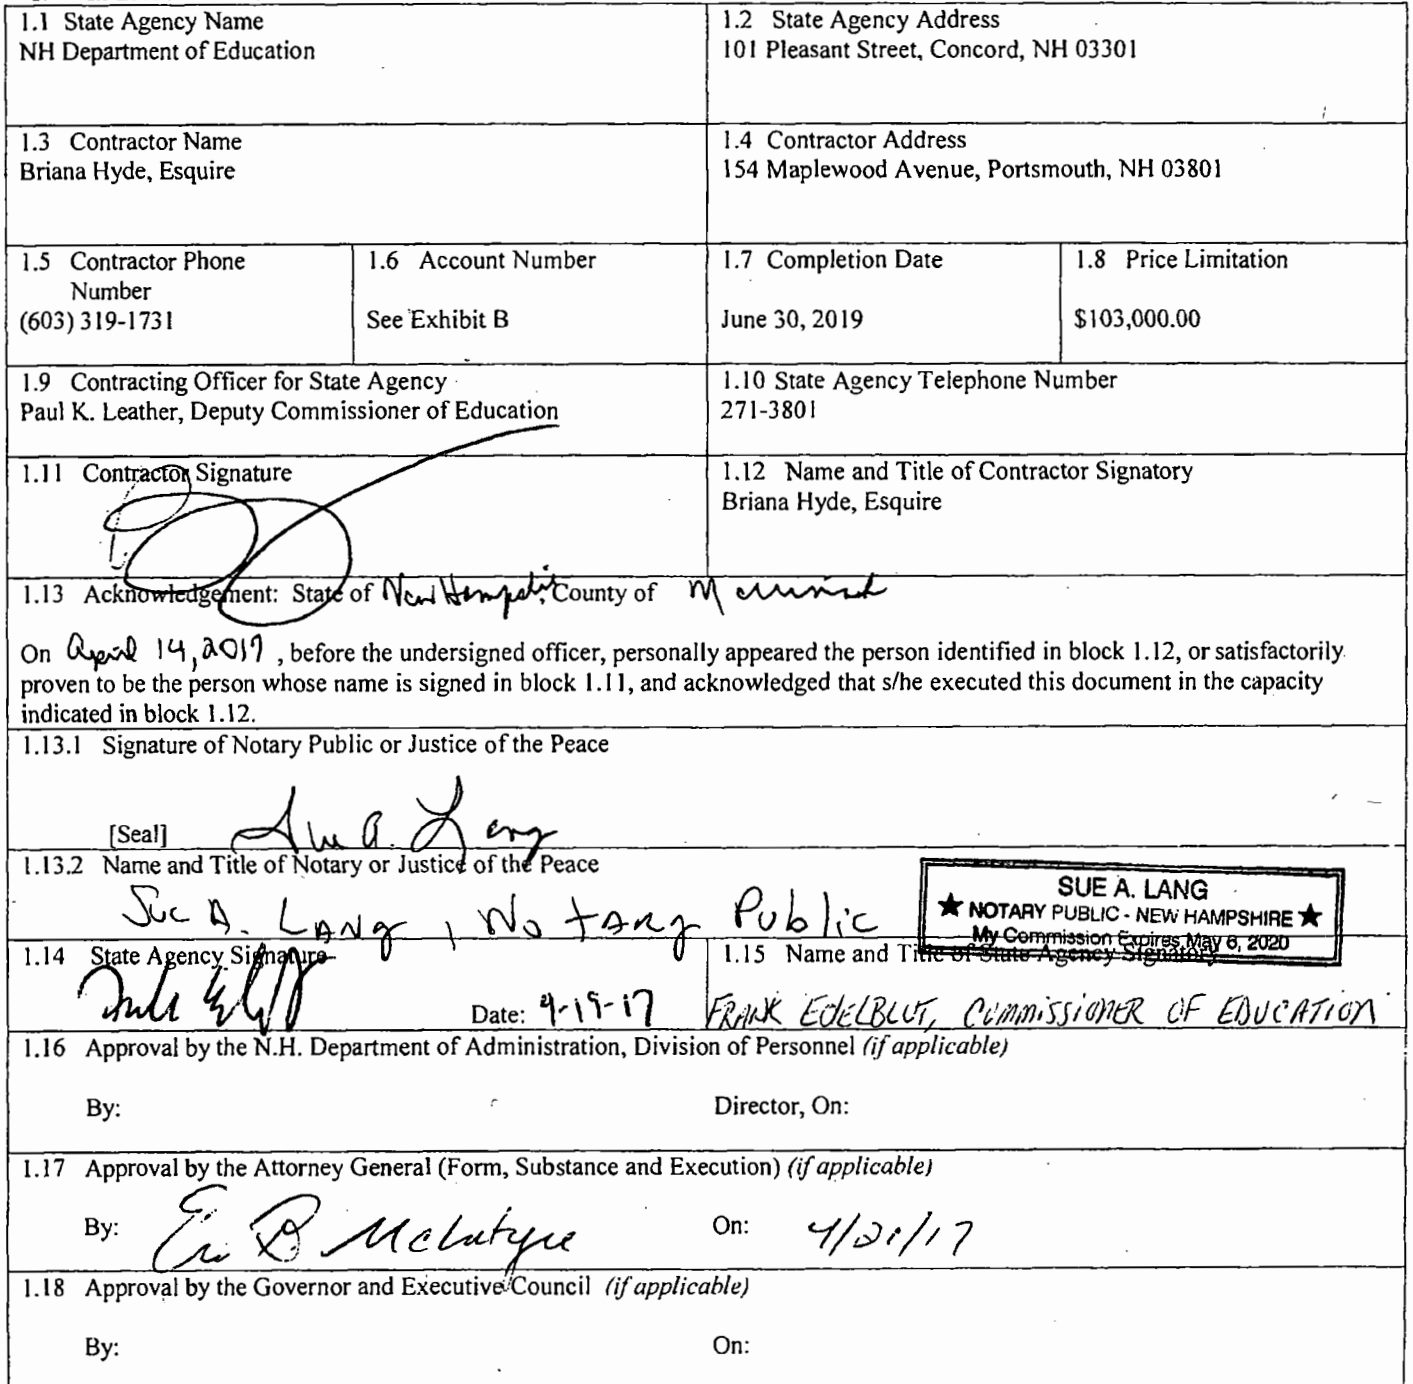 1.1 State Agency Name
NH Department of Education
1.2 State Agency Address
101 Pleasant Street, Concord, NH 03301
1.3 Contractor Name
Briana Hyde, Esquire
1.4 Contractor Address
154 Maplewood Avenue, Portsmouth, NH 03801
1.5 Contractor Phone
Number
(603) 319-1731
1.6 Account Number
See Exhibit B
1.7 Completion Date
June 30, 2019
1.8 Price Limitation
$103,000.00
1.9 Contracting Officer for State Agency
Paul K. Leather, Deputy Commissioner of Education
1.10 State Agency Telephone Number
271-3801
1.11 Contractor Signature
1.12 Name and Title of Contractor Signatory
Briana Hyde, Esquire
1.13 Acknowledgement: State of New Hampshire, County of Merrimack
On April 14, 2017 , before the undersigned officer, personally appeared the person identified in block 1.12, or satisfactorily
proven to be the person whose name is signed in block 1.11, and acknowledged that s/he executed this document in the capacity
indicated in block 1.12.
1.13.1 Signature of Notary Public or Justice of the Peace
[Seal] Sue A. Lang
1.13.2 Name and Title of Notary or Justice of the Peace
Sue A. LANg, NotARy Public
SUE A. LANG
★ NOTARY PUBLIC - NEW HAMPSHIRE ★
My Commission Expires May 6, 2020
1.14 State Agency Signature
Date: 4-19-17
1.15 Name and Title of State Agency Signatory
FRANK EDELBLUT, COMMISSIONER OF EDUCATION
1.16 Approval by the N.H. Department of Administration, Division of Personnel (if applicable)
By: Director, On:
1.17 Approval by the Attorney General (Form, Substance and Execution) (if applicable)
By: McIntyre On: /17
1.18 Approval by the Governor and Executive Council (if applicable)
By: On: